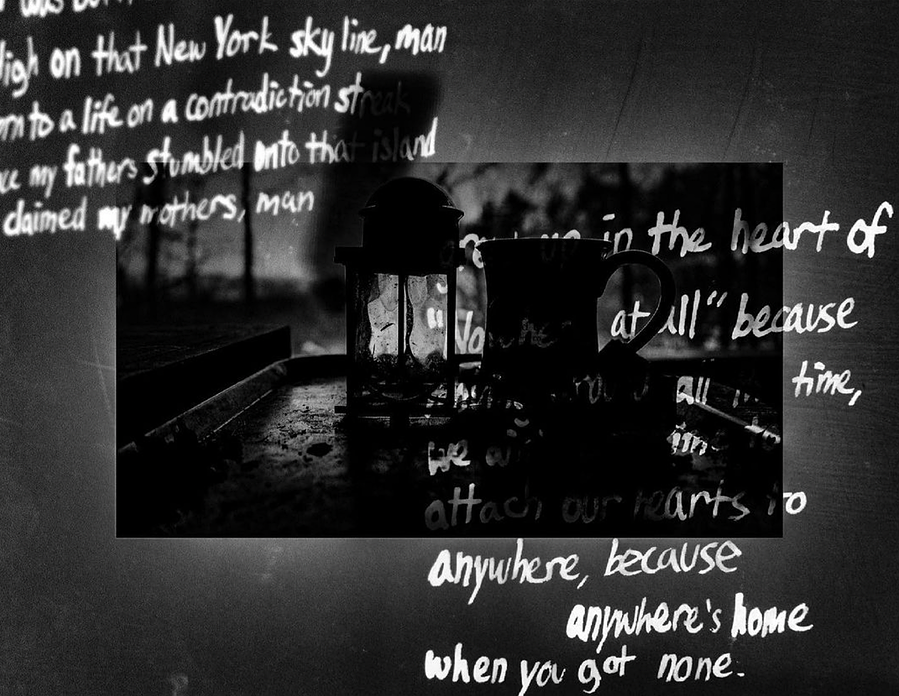 was born
High on that New York sky line, man
to a life on a contradiction streak
my fathers stumbled onto that island
claimed my mothers, man
grow up in the heart of
"Nowhere at all" because
all time,
we
attach our hearts to
anywhere, because
anywhere's home
when you got none.